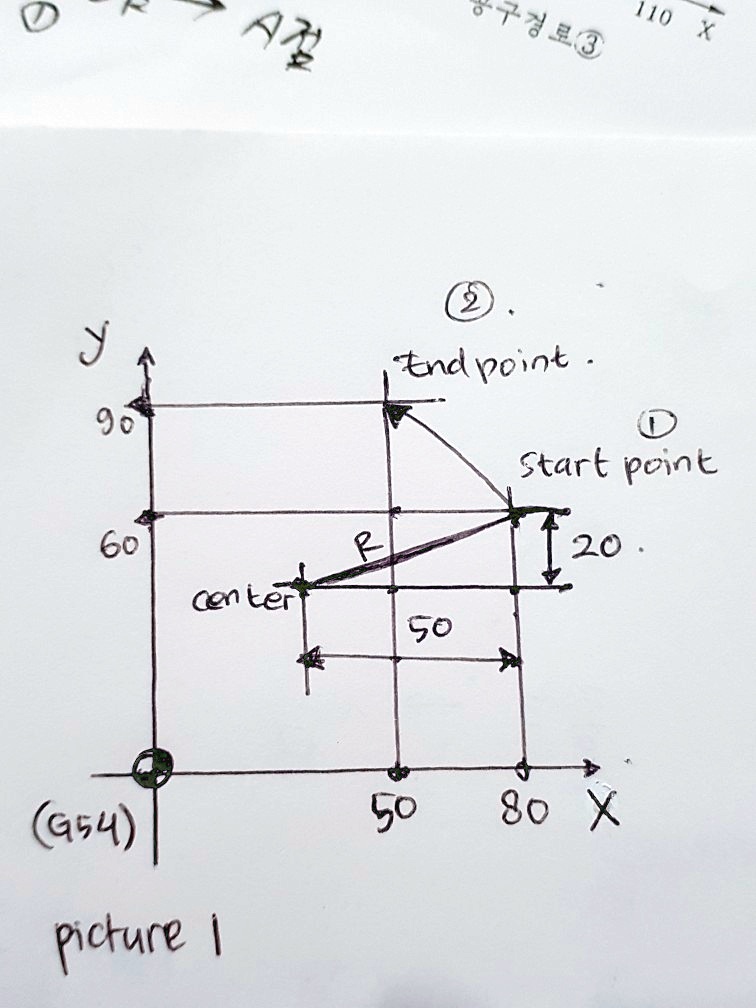 ① R A점
공구경로③
110 X
②.
y
End point.
90
①
start point
60
R
20.
center
50
50
80
X
(G54)
picture 1